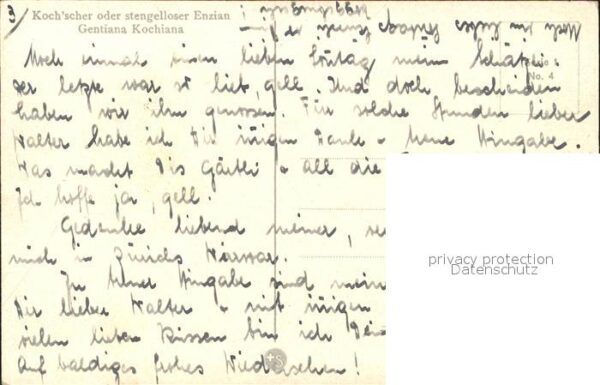 3)
Koch'scher oder stengelloser Enzian
Gentiana Kochiana
No. 4
Noch einmal einen lieben Sonntag mein Schätzeli:
der letzte war so lieb, gell. Und doch bescheiden
haben wir ihn genossen. Für solche Stunden lieber
Walter habe ich Dir innigen Dank u. treue Hingabe.
Was macht Dis Gärtli u. all die
Ich hoffe ja, gell.
Gedenke liebend meiner,
mich in Zürichs Wirrwar.
In treuer Hingabe sind mein
Dir lieber Walter u. mit innigen
vielen lieben Küssen bin ich Dein
Auf baldiges frohes Wiedersehen!
privacy protection
Datenschutz